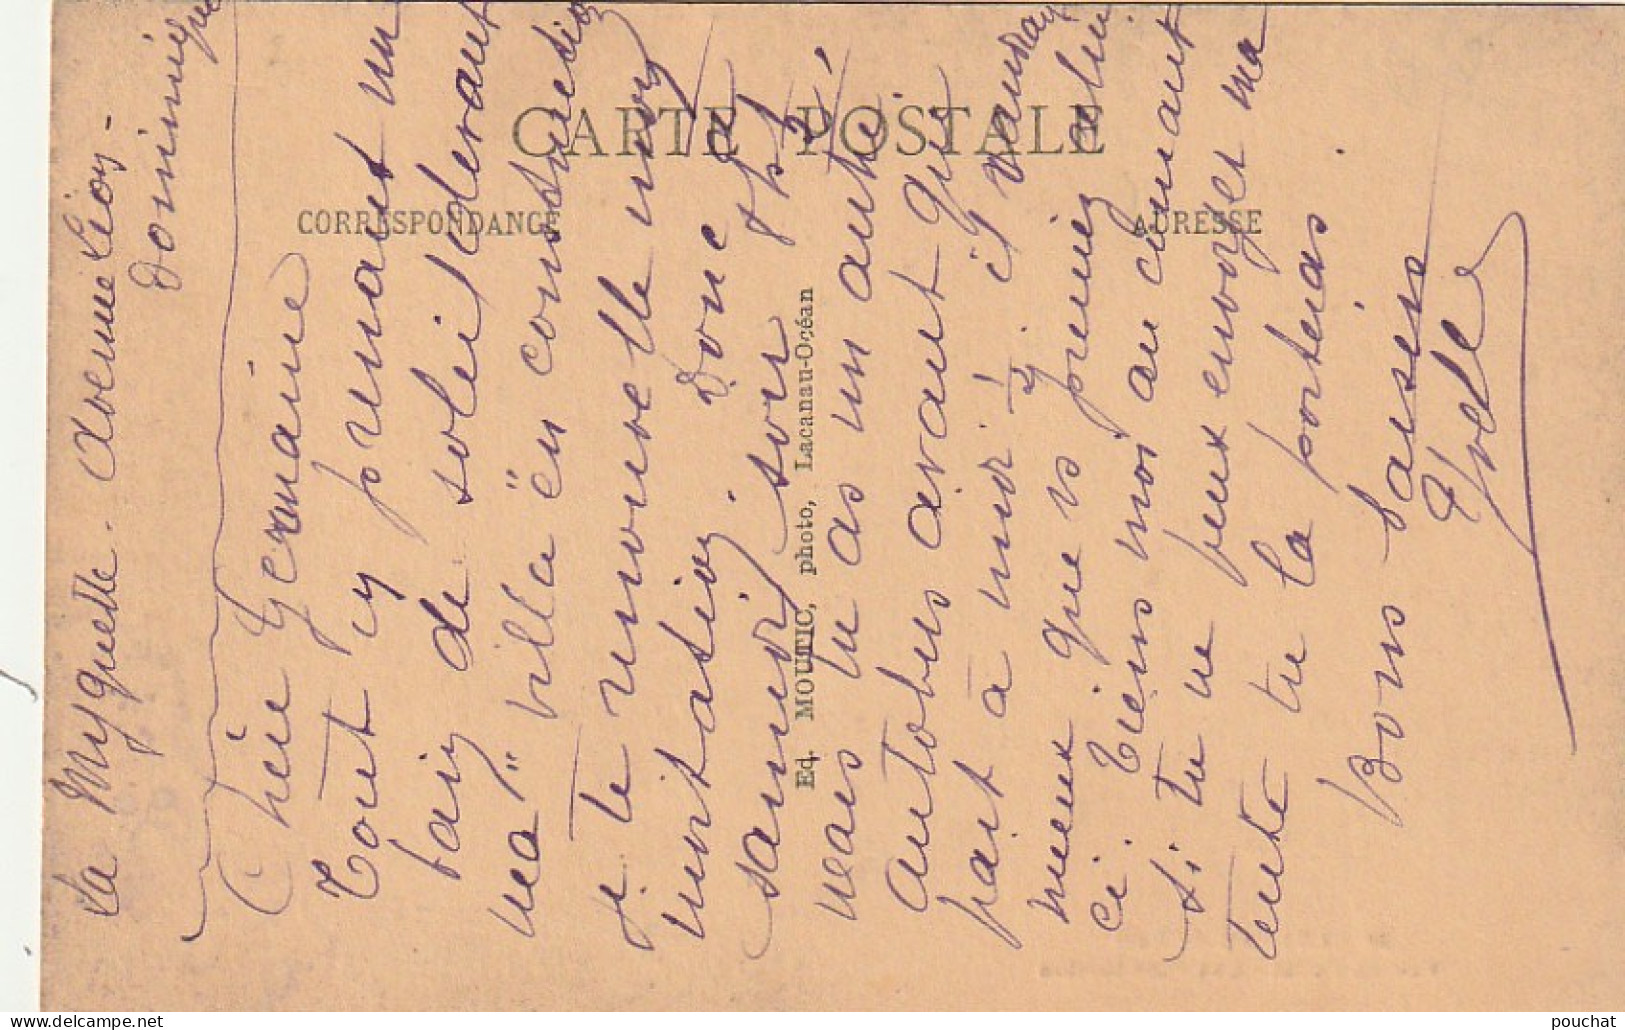 CARTE POSTALE
CORRESPONDANCE
ADRESSE
Ed. MOUTIC, photo, Lacanau-Océan
La Myquette. Avenue Lion -
Dominique
Chère Germaine
Tout en prenant un
bain de soleil devant
ma "villa" en construction
je te renouvelle mon
invitation. Donc
samedi soir
mais tu as un autre
autobus avant qui
part à midi 1/2. il vaudrait
mieux que tu prennes celui
ci. Écris moi au cas
si tu ne peux envoyer ma
tente tu la porteras.
Bons baisers
Yvelle
pouchat